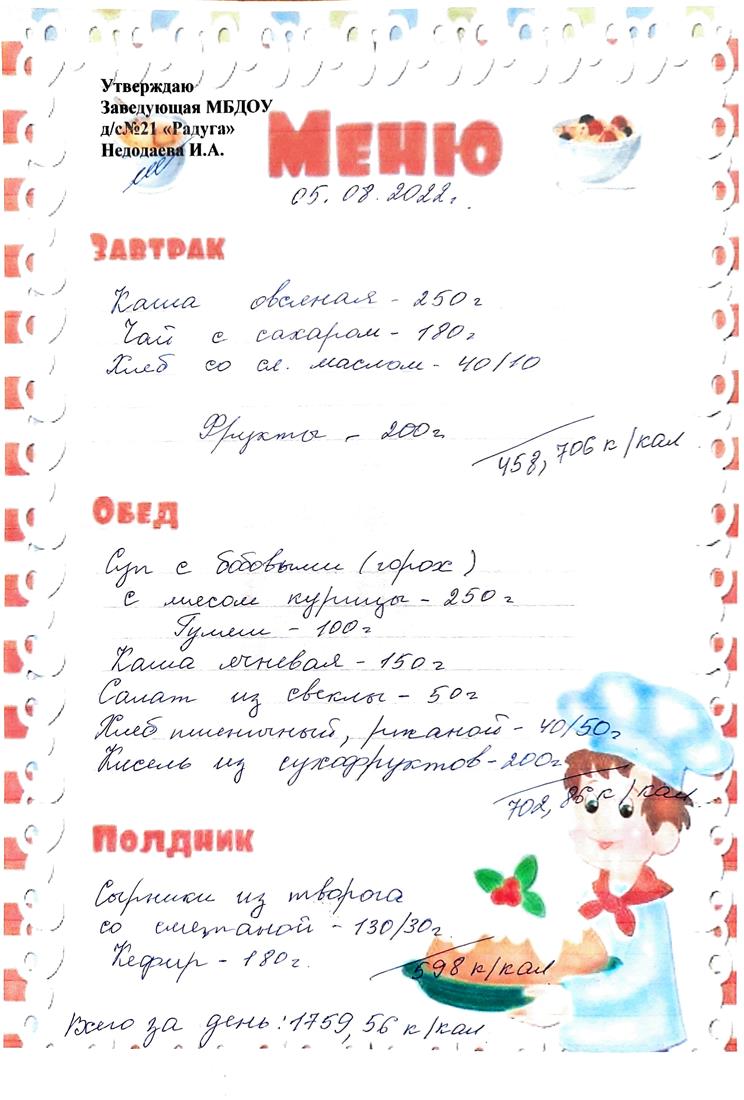 Утверждаю
Заведующая МБДОУ
д/с№21 «Радуга»
Недодаева И.А.
Меню
05.08.2022г.
Завтрак
Каша овсяная - 250г
Чай с сахаром - 180г
Хлеб со сл. маслом - 40/10
Фрукты - 200г
458,706 к/кал
Обед
Суп с бобовыми (горох)
с мясом курицы - 250г
Гуляш - 100г
Каша ячневая - 150г
Салат из свеклы - 50г
Хлеб пшеничный, ржаной - 40/50г
Кисель из сухофруктов - 200г
702,86 к/кал
Полдник
Сырники из творога
со сметаной - 130/30г.
Кефир - 180г.
598 к/кал
Всего за день: 1759,56 к/кал